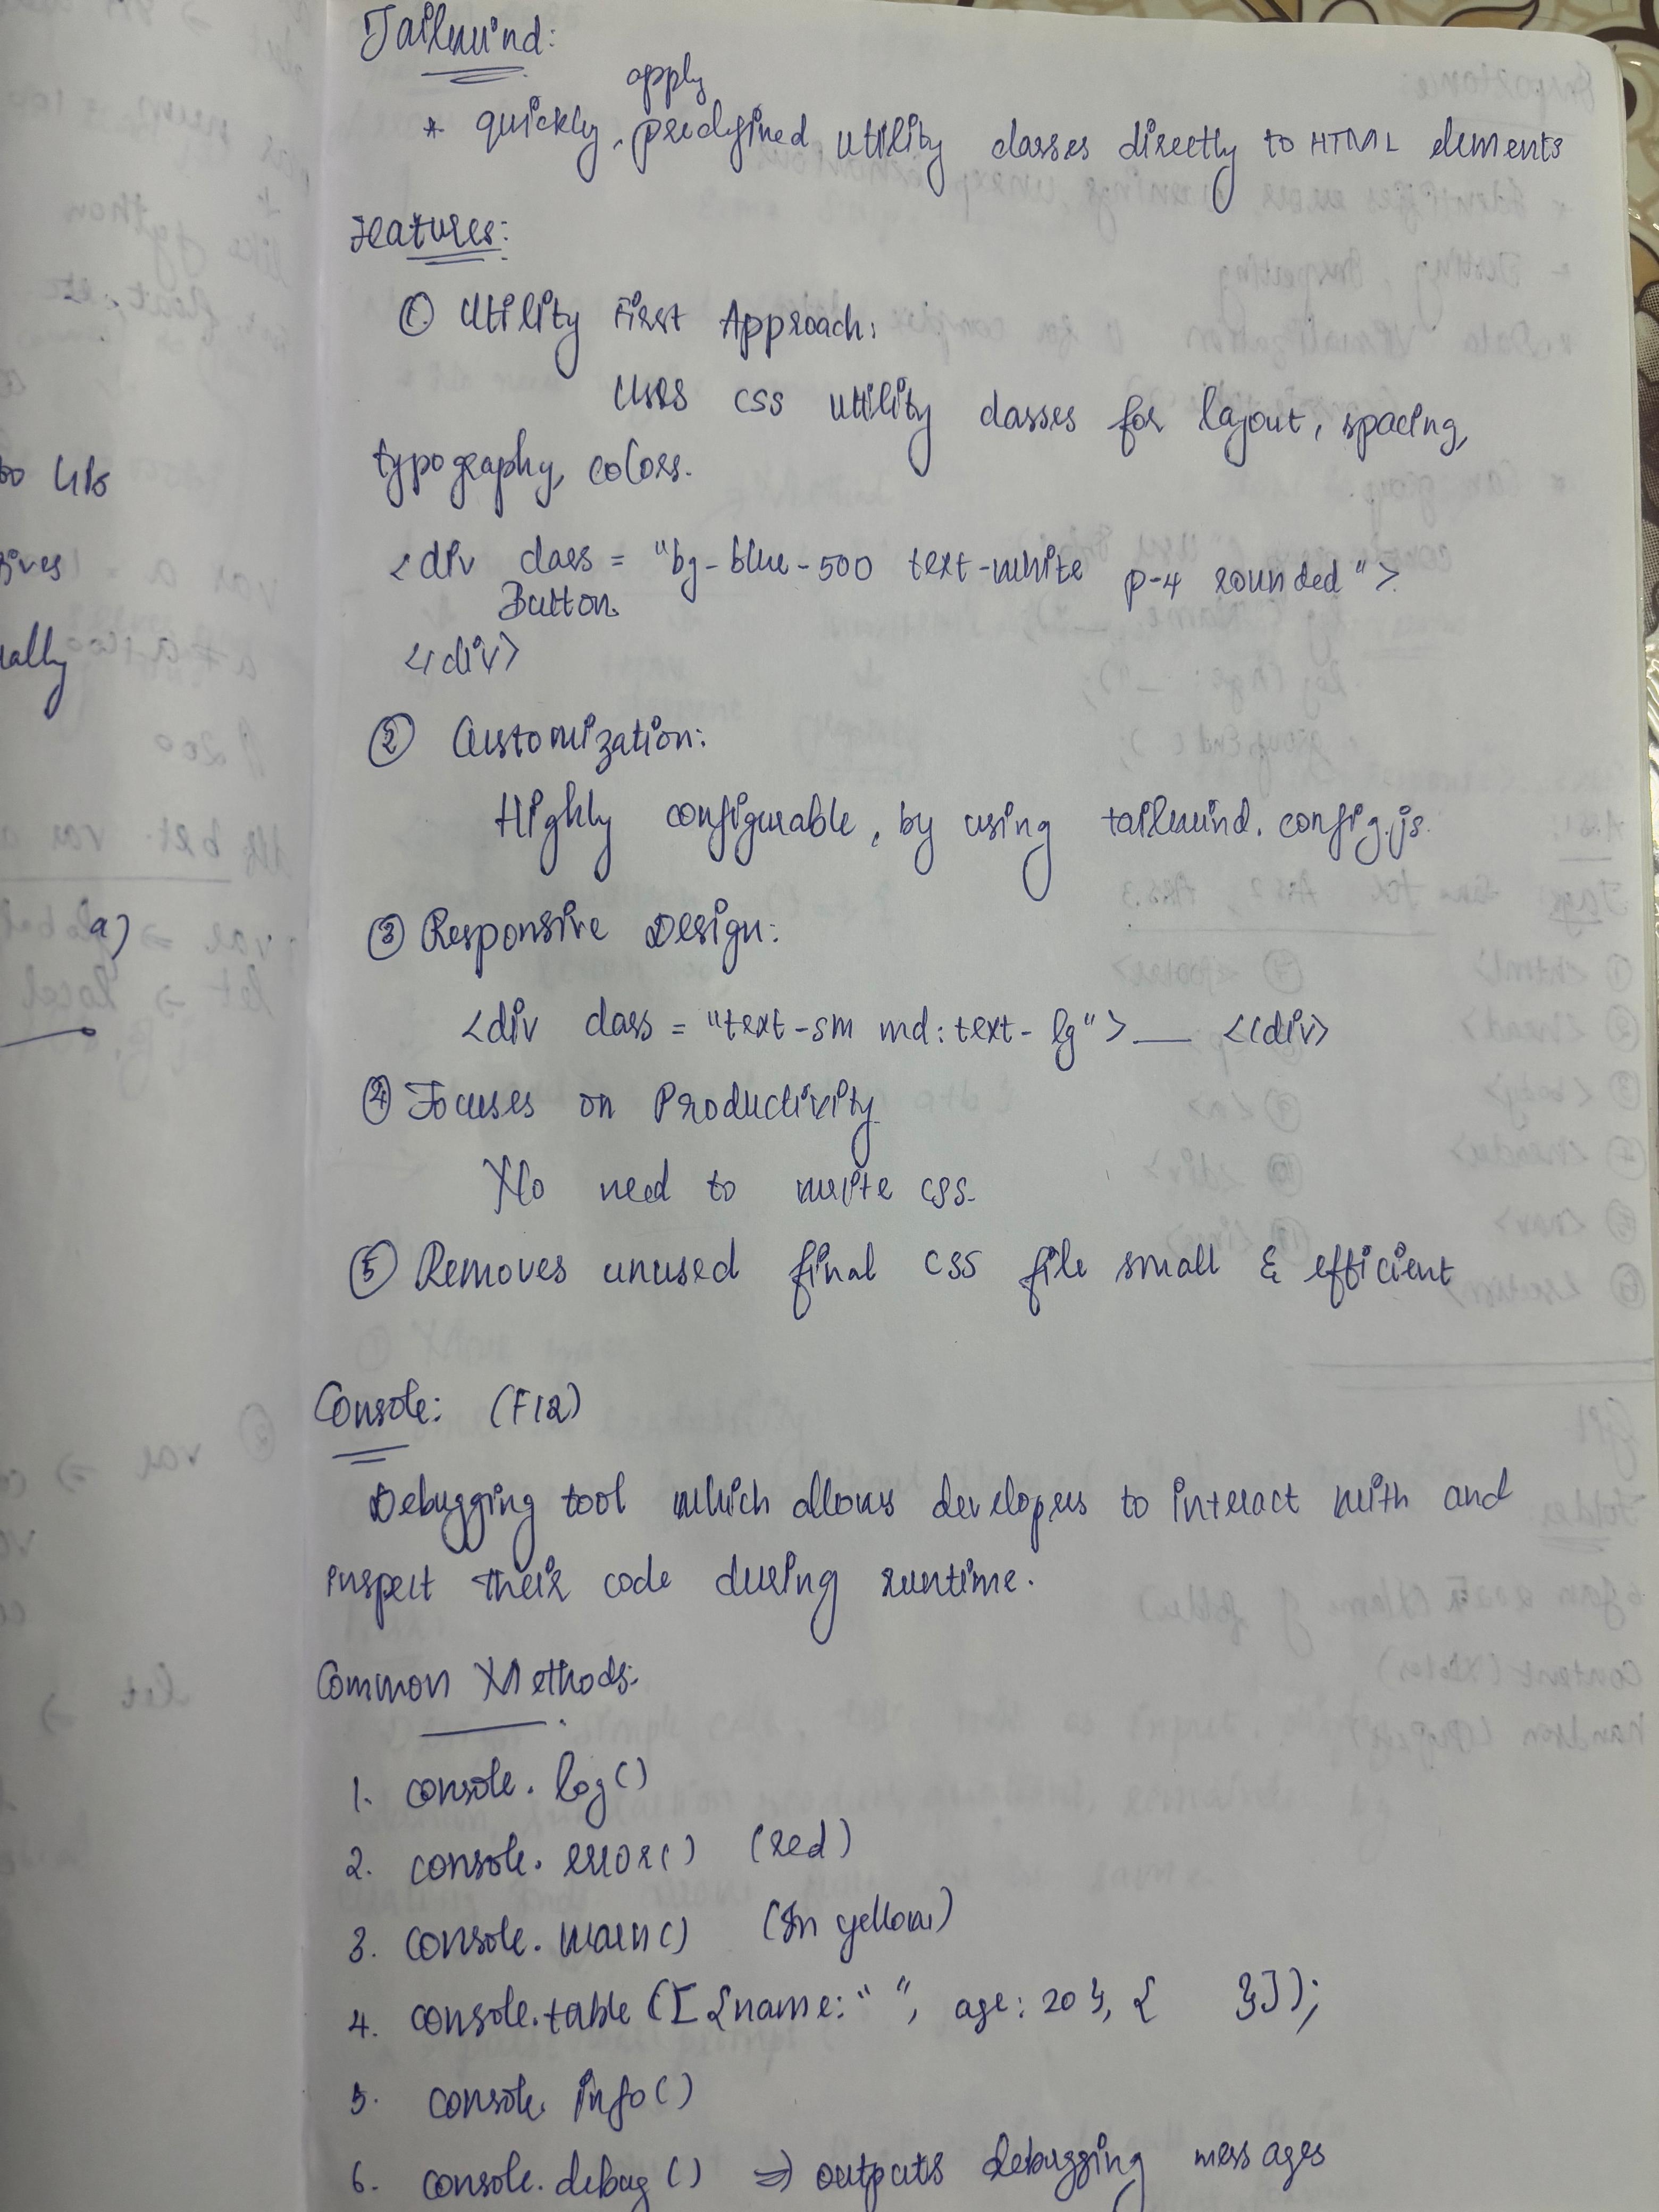 Tailwind:
* quickly, apply predefined utility classes directly to HTML elements
Features:
① Utility First Approach:
Uses CSS utility classes for layout, spacing,
typography, colors.
<div class = "bg-blue-500 text-white p-4 rounded">
Button
</div>
② Customization:
Highly configurable, by using tailwind.config.js.
③ Responsive Design:
<div class = "text-sm md:text-lg">__ </div>
④ Focuses on Productivity
No need to write CSS.
⑤ Removes unused final CSS file small & efficient
Console: (F12)
Debugging tool which allows developers to interact with and
inspect their code during runtime.
Common Methods:
1. console.log()
2. console.error() (red)
3. console.warn() (In yellow)
4. console.table([{name:" ", age: 20}, { }]);
5. console.info()
6. console.debug() => outputs debugging messages